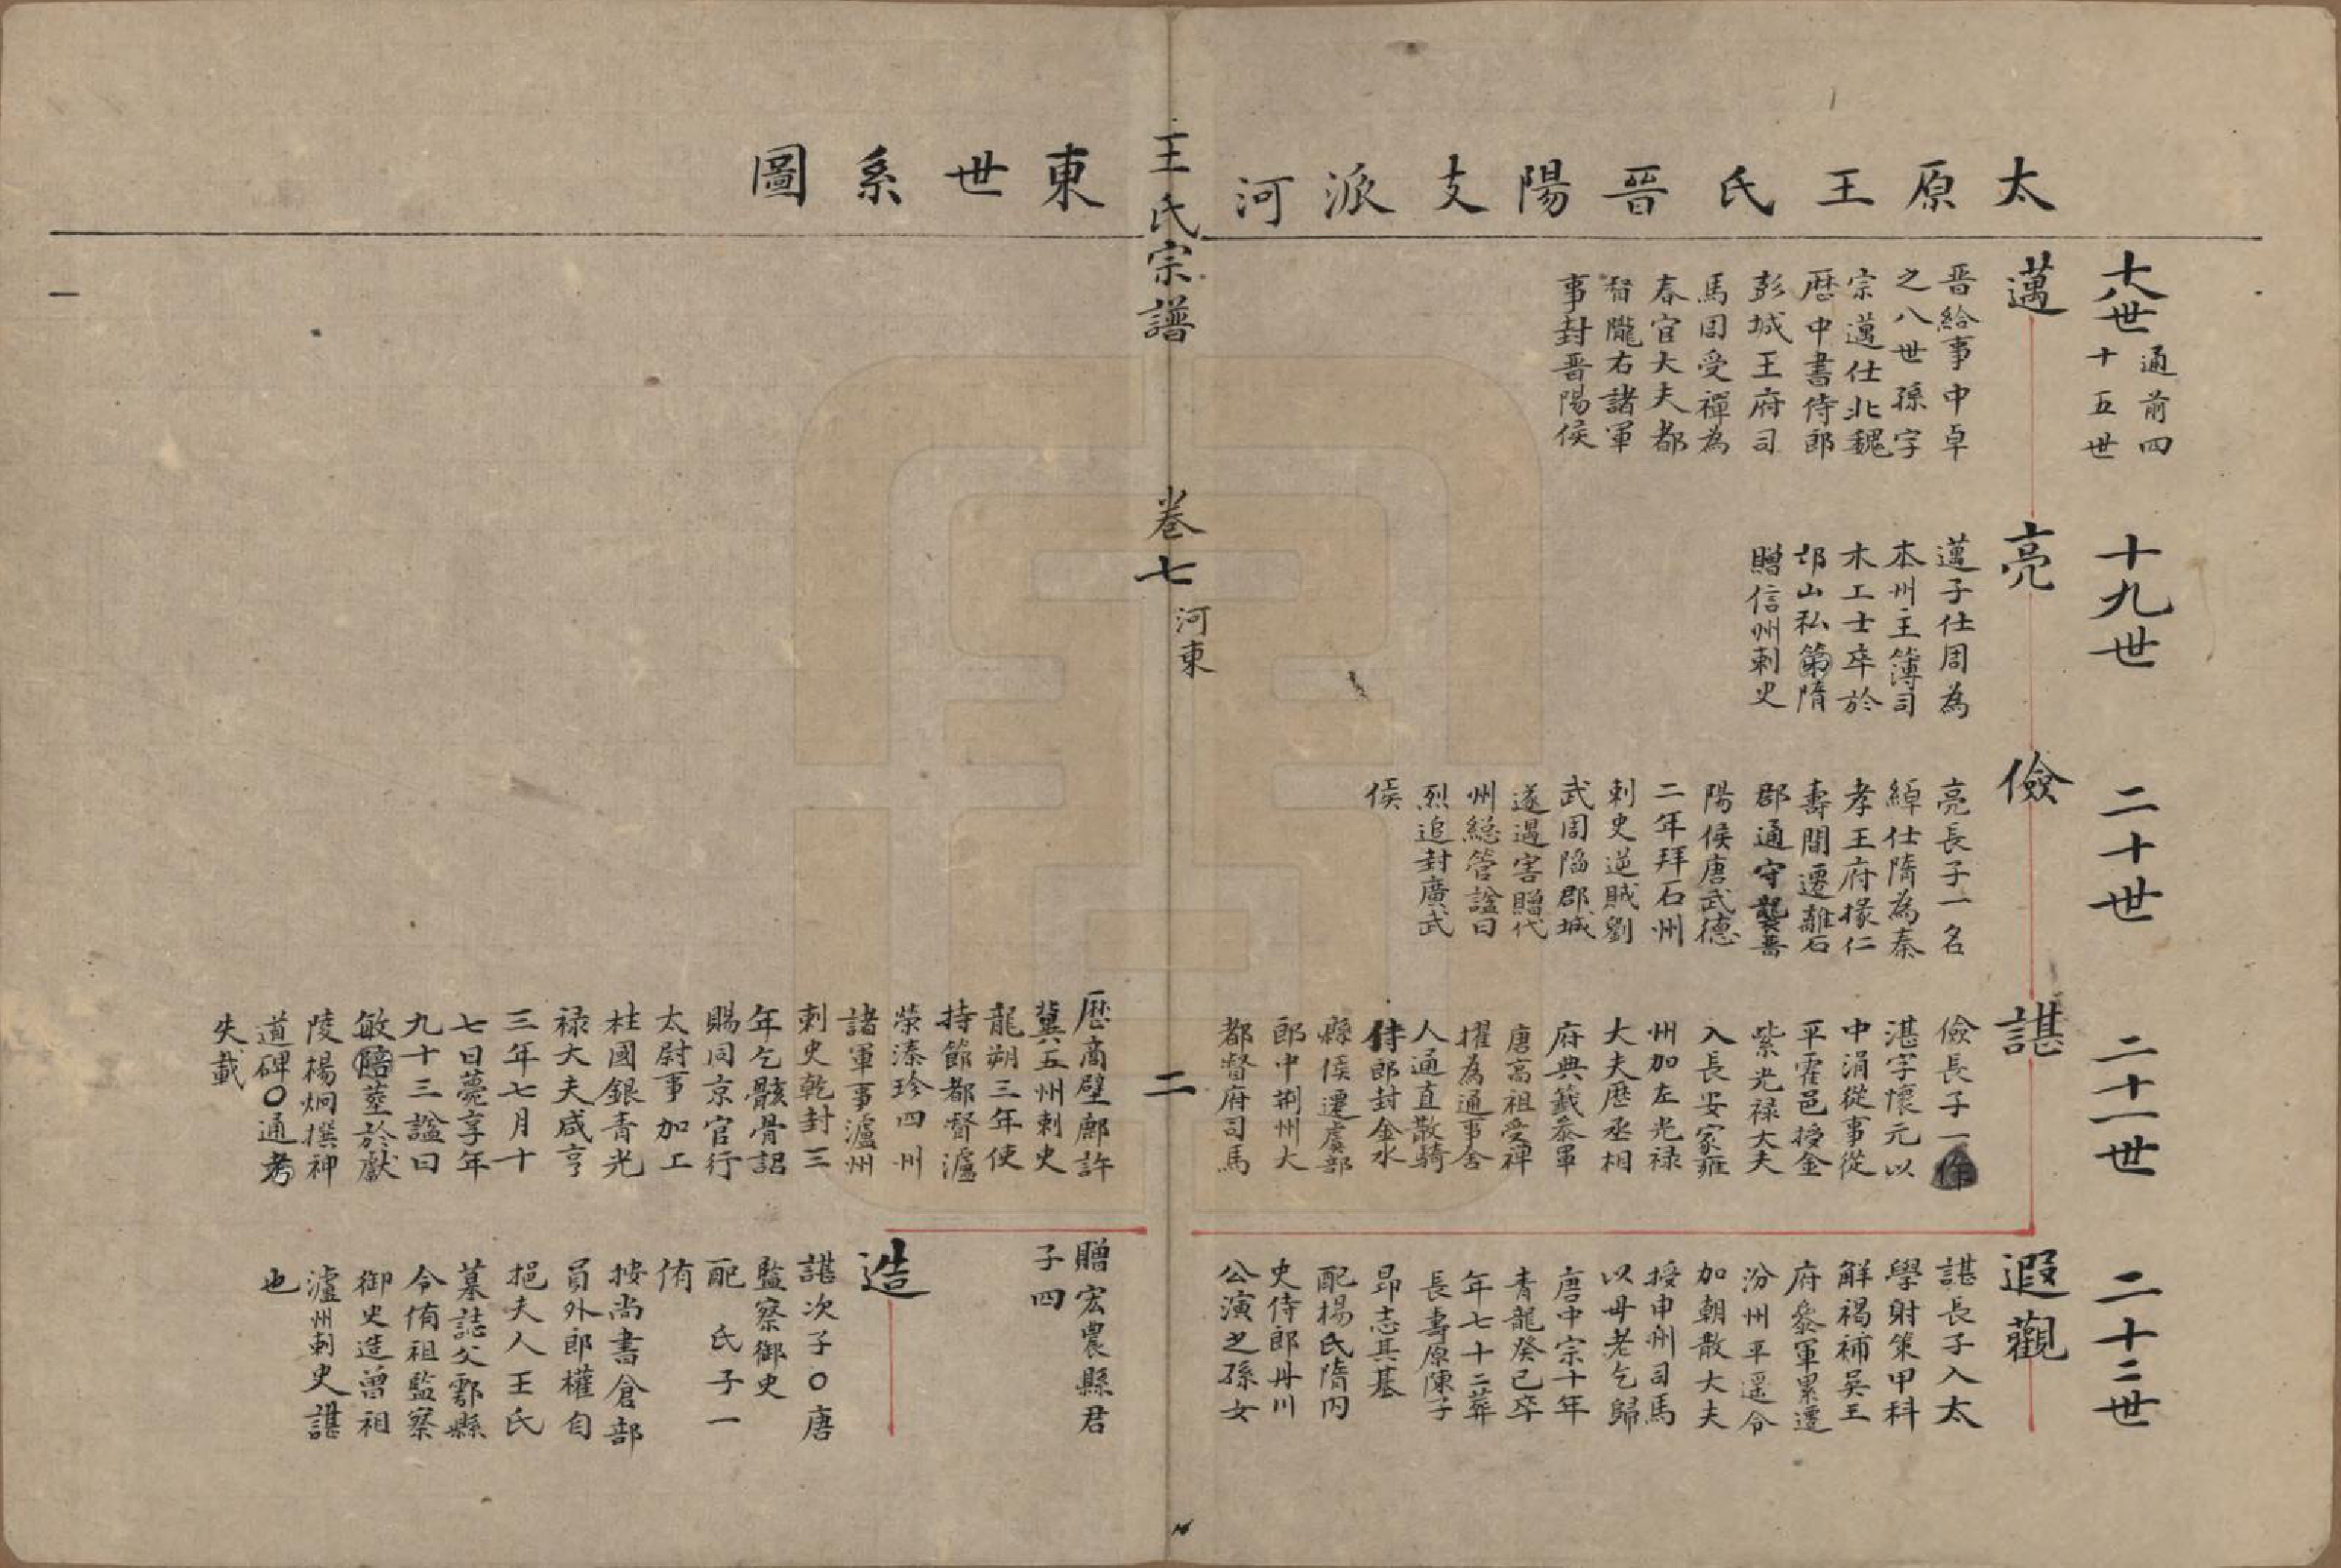 太原王氏晉陽支派河東世系圖
王氏宗譜
卷七
河東
二
十八世
通前四
十五世
邁
晋給事中卓
之八世孫字
宗邁仕北魏
歷中書侍郎
彭城王府司
馬周受禪為
春官大夫都
督隴右諸軍
事封晋陽侯
十九世
亮
邁子仕周為
本州主簿司
木工士卒於
邙山私第隋
贈信州刺史
二十世
儉
亮長子一名
綽仕隋為秦
孝王府掾仁
壽間遷離石
郡通守襲晋
陽侯唐武德
二年拜石州
刺史逆賊劉
武周陷郡城
遂遇害贈代
州總管諡曰
烈追封廣武
侯
二十一世
諶
儉長子一作
湛字懷元以
中涓從事從
平霍邑授金
紫光禄大夫
入長安家雍
州加左光禄
大夫歷丞相
府典籤叅軍
唐高祖受禪
擢為通事舍
人通直散騎
侍郎封金水
縣侯遷虞部
郎中荆州大
都督府司馬
歷商壁鄜許
冀五州刺史
龍朔三年使
持節都督瀘
榮溱珍四州
諸軍事瀘州
刺史乾封三
年乞骸骨詔
賜同京官行
太尉事加工
柱國銀青光
禄大夫咸亨
三年七月十
七日薨享年
九十三諡曰
敏陪塟於獻
陵楊炯撰神
道碑〇通考
失載
二十二世
遐觀
諶長子入太
學射策甲科
解褐補吴王
府叅軍累遷
汾州平遥令
加朝散大夫
授申州司馬
以母老乞歸
唐中宗十年
青龍癸已卒
年七十二葬
長壽原陳子
昂志其墓
配楊氏隋内
史侍郎丹川
公演之孫女
贈宏農縣君
子四
造
諶次子〇唐
監察御史
配　氏子一
侑
按尚書倉部
員外郎權自
挹夫人王氏
墓誌父鄠縣
令侑祖監察
御史造曾祖
瀘州刺史諶
也